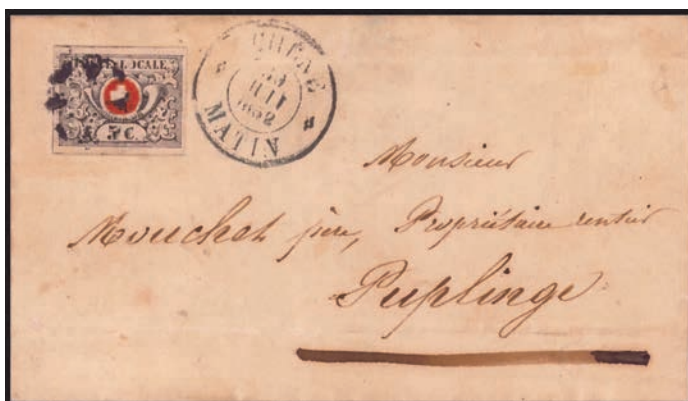 POSTE LOCALE
5 C.
CHÊNE
JUIL
1852
MATIN
Monsieur
Mouchet père, Propriétaire rentier
Puplinge